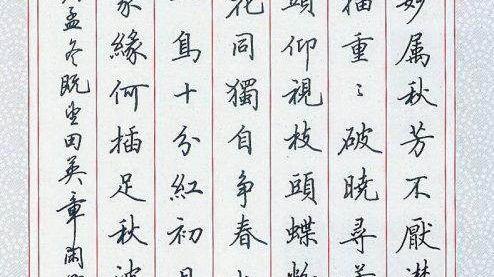 妙属秋芳不厭
描重〻破曉尋
頭仰視枝頭蝶
花同獨自争春
鳥十分紅初
家緣何插足秋波
孟冬既望田英章